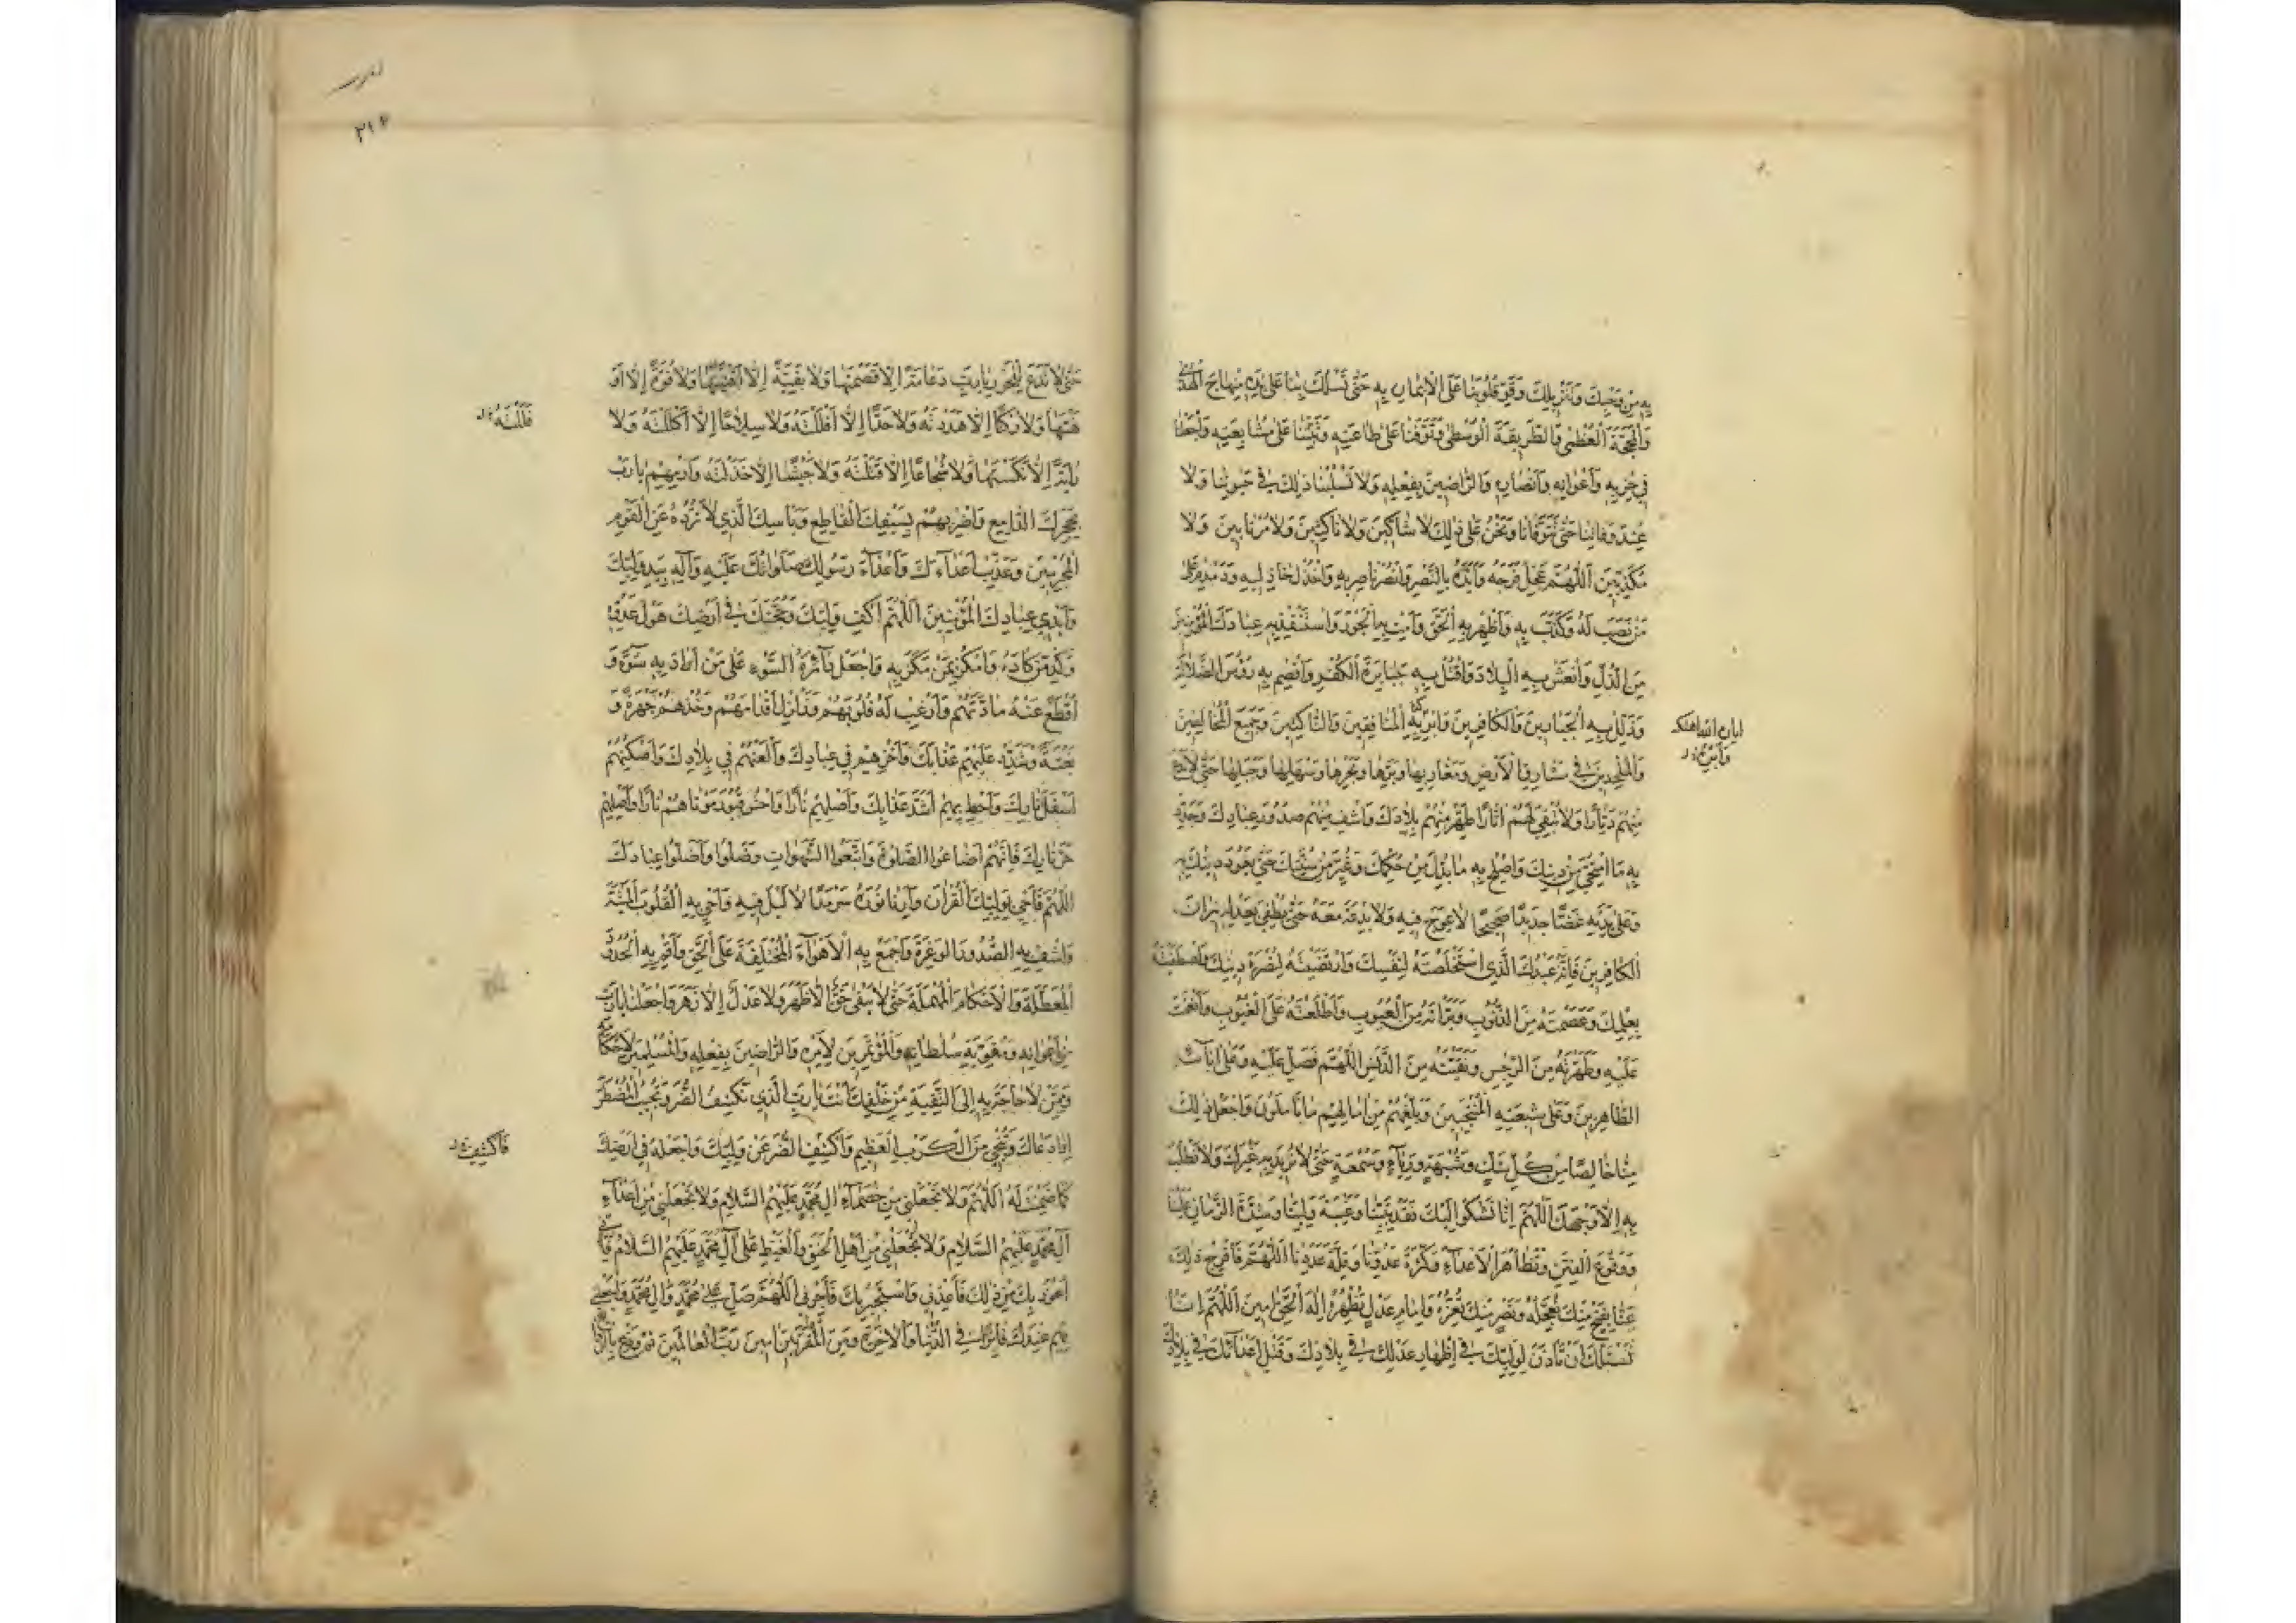 بِهِ مِنْ وَحْيِكَ وَتَنْزِيلِكَ وَقَوِّ قُلُوبَنَا عَلَى الْإِيمَانِ بِهِ حَتَّى تَسْلُكَ بِنَا عَلَى يَدِهِ مِنْهَاجَ الْهُدَى
وَالْمَحَجَّةَ الْعُظْمَى وَالطَّرِيقَةَ الْوُسْطَى وَقَوِّنَا عَلَى طَاعَتِهِ وَثَبِّتْنَا عَلَى مُشَايَعَتِهِ وَاجْعَلْنَا
فِي حِزْبِهِ وَأَعْوَانِهِ وَأَنْصَارِهِ وَالرَّاضِينَ بِفِعْلِهِ وَلَا تَسْلُبْنَا ذَلِكَ فِي حَيٰوتِنَا وَلَا
عِنْدَ وَفَاتِنَا حَتَّى تَتَوَفَّانَا وَنَحْنُ عَلَى ذَلِكَ لَا شَاكِّينَ وَلَا نَاكِثِينَ وَلَا مُرْتَابِينَ وَلَا
مُكَذِّبِينَ اَللَّهُمَّ عَجِّلْ فَرَجَهُ وَأَيِّدْهُ بِالنَّصْرِ وَانْصُرْ نَاصِرِيهِ وَاخْذُلْ خَاذِلِيهِ وَدَمْدِمْ عَلَى
مَنْ نَصَبَ لَهُ وَكَذَّبَ بِهِ وَأَظْهِرْ بِهِ الْحَقَّ وَأَمِتْ بِهِ الْجَوْرَ وَاسْتَنْقِذْ بِهِ عِبَادَكَ الْمُؤْمِنِينَ
مِنَ الذُّلِّ وَانْعَشْ بِهِ الْبِلَادَ وَاقْتُلْ بِهِ جَبَابِرَةَ الْكُفْرِ وَاقْصِمْ بِهِ رُؤُسَ الضَّلَالَةِ
وَذَلِّلْ بِهِ الْجَبَّارِينَ وَالْكَافِرِينَ وَابِرْ بِهِ الْمُنَافِقِينَ وَالنَّاكِثِينَ وَجَمِيعَ الْمُخَالِفِينَ
وَالْمُلْحِدِينَ فِي مَشَارِقِ الْأَرْضِ وَمَغَارِبِهَا وَبَرِّهَا وَبَحْرِهَا وَسَهْلِهَا وَجَبَلِهَا حَتَّى لَا تَدَعَ
مِنْهُمْ دَيَّارًا وَلَا تُبْقِيَ لَهُمْ اٰثَارًا طَهِّرْ مِنْهُمْ بِلَادَكَ وَاشْفِ مِنْهُمْ صُدُورَ عِبَادِكَ وَجَدِّدْ
بِهِ مَا امْتَحٰى مِنْ دِينِكَ وَأَصْلِحْ بِهِ مَا بُدِّلَ مِنْ حُكْمِكَ وَغُيِّرَ مِنْ سُنَّتِكَ حَتَّى يَعُودَ دِينُكَ بِهِ
وَعَلَى يَدَيْهِ غَضًّا جَدِيدًا صَحِيحًا لَا عِوَجَ فِيهِ وَلَا بِدْعَةَ مَعَهُ حَتَّى تُطْفِئَ بِعَدْلِهِ نِيرَانَ
الْكَافِرِينَ فَإِنَّهُ عَبْدُكَ الَّذِي اسْتَخْلَصْتَهُ لِنَفْسِكَ وَارْتَضَيْتَهُ لِنُصْرَةِ دِينِكَ وَاصْطَفَيْتَهُ
بِعِلْمِكَ وَعَصَمْتَهُ مِنَ الذُّنُوبِ وَبَرَّأْتَهُ مِنَ الْعُيُوبِ وَأَطْلَعْتَهُ عَلَى الْغُيُوبِ وَأَنْعَمْتَ
عَلَيْهِ وَطَهَّرْتَهُ مِنَ الرِّجْسِ وَنَقَّيْتَهُ مِنَ الدَّنَسِ اللَّهُمَّ فَصَلِّ عَلَيْهِ وَعَلَى اٰبَآئِهِ
الطَّاهِرِينَ وَعَلَى شِيعَتِهِ الْمُنْتَجَبِينَ وَبَلِّغْهُمْ مِنْ اٰمَالِهِمْ مَا يَأْمُلُونَ وَاجْعَلْ ذَلِكَ
مِنَّا خَالِصًا مِنْ كُلِّ شَكٍّ وَشُبْهَةٍ وَرِيَآءٍ وَسُمْعَةٍ حَتَّى لَا نُرِيدَ بِهِ غَيْرَكَ وَلَا نَطْلُبَ
بِهِ إِلَّا وَجْهَكَ اَللَّهُمَّ إِنَّا نَشْكُوا إِلَيْكَ فَقْدَ نَبِيِّنَا وَغَيْبَةَ وَلِيِّنَا وَشِدَّةَ الزَّمَانِ عَلَيْنَا
وَوُقُوعَ الْفِتَنِ وَتَظَاهُرَ الْأَعْدَآءِ وَكَثْرَةَ عَدُوِّنَا وَقِلَّةَ عَدَدِنَا اَللَّهُمَّ فَافْرُجْ ذَلِكَ
عَنَّا بِفَتْحٍ مِنْكَ تُعَجِّلُهُ وَنَصْرٍ مِنْكَ تُعِزُّهُ وَإِمَامِ عَدْلٍ تُظْهِرُهُ إِلٰهَ الْحَقِّ اٰمِينَ اَللَّهُمَّ إِنَّا
نَسْئَلُكَ أَنْ تَأْذَنَ لِوَلِيِّكَ فِي إِظْهَارِ عَدْلِكَ فِي بِلَادِكَ وَقَتْلِ أَعْدَآئِكَ فِي بِلَادِكَ
وَأَبِرْ
٢١٤
حَتَّى لَا تَدَعَ لِلْجَوْرِ يَا رَبِّ دِعَامَةً إِلَّا قَصَمْتَهَا وَلَا بَقِيَّةً إِلَّا أَفْنَيْتَهَا وَلَا قُوَّةً إِلَّا أَوْ
هَنْتَهَا وَلَا رُكْنًا إِلَّا هَدَدْتَهُ وَلَا حَدًّا إِلَّا أَفْلَلْتَهُ وَلَا سِلَاحًا إِلَّا أَكْلَلْتَهُ وَلَا
فَلَلْتَهُ
رَايَةً إِلَّا نَكَسْتَهَا وَلَا شُجَاعًا إِلَّا قَتَلْتَهُ وَلَا جَيْشًا إِلَّا خَذَلْتَهُ وَارْمِهِمْ يَا رَبِّ
بِحَجَرِكَ الدَّامِغِ وَاضْرِبْهُمْ بِسَيْفِكَ الْقَاطِعِ وَبَأْسِكَ الَّذِي لَا تَرُدُّهُ عَنِ الْقَوْمِ
الْمُجْرِمِينَ وَعَذِّبْ أَعْدَآءَكَ وَأَعْدَآءَ رَسُولِكَ صَلَوَاتُكَ عَلَيْهِ وَآلِهِ بِيَدِ وَلِيِّكَ
وَأَيْدِي عِبَادِكَ الْمُؤْمِنِينَ اَللَّهُمَّ اكْفِ وَلِيَّكَ وَحُجَّتَكَ فِي أَرْضِكَ هَوْلَ عَدُوِّهِ
وَكِدْ مَنْ كَادَهُ وَامْكُرْ بِمَنْ مَكَرَ بِهِ وَاجْعَلْ دَآئِرَةَ السَّوْءِ عَلَى مَنْ أَرَادَ بِهِ سُوْءً وَ
اقْطَعْ عَنْهُ مَادَّتَهُمْ وَأَرْعِبْ لَهُ قُلُوبَهُمْ وَزَلْزِلْ أَقْدَامَهُمْ وَخُذْهُمْ جَهْرَةً وَ
بَغْتَةً وَشَدِّدْ عَلَيْهِمْ عَذَابَكَ وَأَخْزِهِمْ فِي عِبَادِكَ وَالْعَنْهُمْ فِي بِلَادِكَ وَأَسْكِنْهُمْ
أَسْفَلَ نَارِكَ وَأَحِطْ بِهِمْ أَشَدَّ عَذَابِكَ وَأَصْلِهِمْ نَارًا وَاحْشُ قُبُورَ مَوْتَاهُمْ نَارًا وَأَصْلِهِمْ
حَرَّ نَارِكَ فَإِنَّهُمْ أَضَاعُوا الصَّلٰوةَ وَاتَّبَعُوا الشَّهَوَاتِ وَضَلُّوا وَأَضَلُّوا عِبَادَكَ
اَللَّهُمَّ فَأَحْيِ بِوَلِيِّكَ الْقُرْاٰنَ وَأَرِنَا نُورَهُ سَرْمَدًا لَا لَيْلَ فِيهِ وَأَحْيِ بِهِ الْقُلُوبَ الْمَيِّتَةَ
وَاشْفِ بِهِ الصُّدُورَ الْوَغِرَةَ وَاجْمَعْ بِهِ الْأَهْوَآءَ الْمُخْتَلِفَةَ عَلَى الْحَقِّ وَأَقِمْ بِهِ الْحُدُودَ
الْمُعَطَّلَةَ وَالْأَحْكَامَ الْمُهْمَلَةَ حَتَّى لَا يَبْقَى حَقٌّ إِلَّا ظَهَرَ وَلَا عَدْلٌ إِلَّا زَهَرَ وَاجْعَلْنَا يَا رَبِّ
مِنْ أَعْوَانِهِ وَمُقَوِّيَةِ سُلْطَانِهِ وَالْمُؤْتَمِرِينَ لِأَمْرِهِ وَالرَّاضِينَ بِفِعْلِهِ وَالْمُسَلِّمِينَ لِأَحْكَامِهِ
وَمِمَّنْ لَا حَاجَةَ بِهِ إِلَى التَّقِيَّةِ مِنْ خَلْقِكَ أَنْتَ يَا رَبِّ الَّذِي تَكْشِفُ الضُّرَّ وَتُجِيبُ الْمُضْطَرَّ
إِذَا دَعَاكَ وَتُنْجِي مِنَ الْكَرْبِ الْعَظِيمِ وَاكْشِفِ الضُّرَّ عَنْ وَلِيِّكَ وَاجْعَلْهُ فِي أَرْضِكَ
فَاكْشِفْ
كَمَا ضَمِنْتَ لَهُ اَللَّهُمَّ وَلَا تَجْعَلْنِي مِنْ خُصَمَآءِ اٰلِ مُحَمَّدٍ عَلَيْهِمُ السَّلَامُ وَلَا تَجْعَلْنِي مِنْ أَعْدَآءِ
اٰلِ مُحَمَّدٍ عَلَيْهِمُ السَّلَامُ وَلَا تَجْعَلْنِي مِنْ أَهْلِ الْحَنَقِ وَالْغَيْظِ عَلَى اٰلِ مُحَمَّدٍ عَلَيْهِمُ السَّلَامُ فَإِنِّي
أَعُوذُ بِكَ مِنْ ذَلِكَ فَأَعِذْنِي وَأَسْتَجِيرُ بِكَ فَأَجِرْنِي اَللَّهُمَّ صَلِّ عَلَى مُحَمَّدٍ وَاٰلِ مُحَمَّدٍ وَاجْعَلْنِي
بِهِمْ عِنْدَكَ فَائِزًا فِي الدُّنْيَا وَالْاٰخِرَةِ وَمِنَ الْمُقَرَّبِينَ اٰمِينَ رَبَّ الْعَالَمِينَ